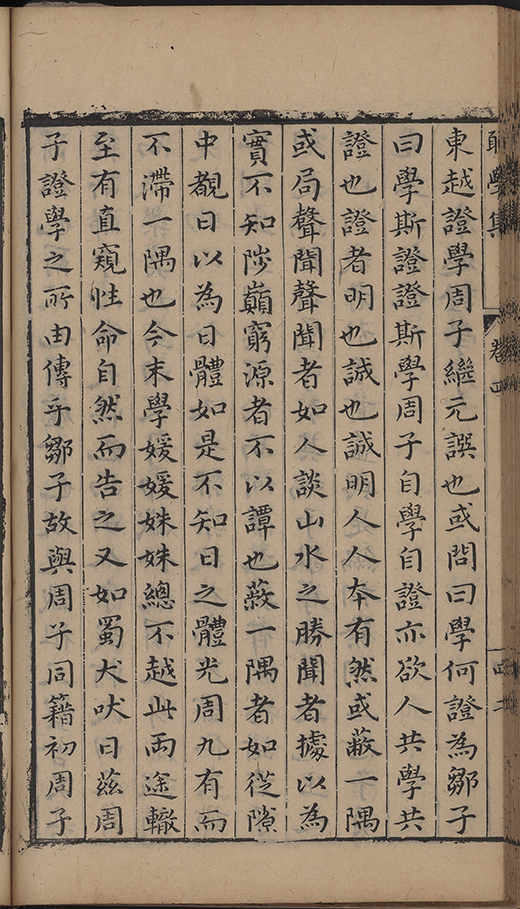 東越證學周子繼元譔也或問曰學何證為鄒子
曰學斯證證斯學周子自學自證亦欲人共學共
證也證者明也誠也誠明人人夲有然或蔽一隅
或局聲聞聲聞者如人談山水之勝聞者據以為
實不知陟巔窮源者不以譚也蔽一隅者如從隙
中覩日以為日體如是不知日之體光周九有而
不滯一隅也今末學媛媛姝姝總不越此兩途轍
至有直窺性命自然而告之又如蜀犬吠日茲周
子證學之所由傳乎鄒子故與周子同籍初周子